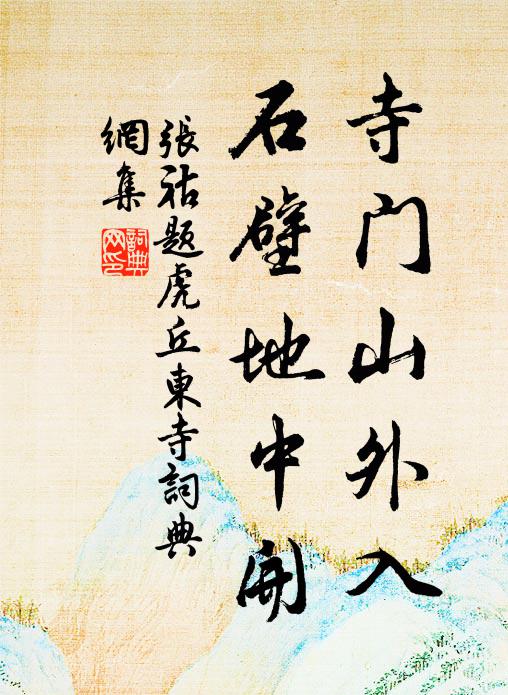 寺門山外入
石壁地中開
張祜題虎丘東寺詞典
網集
詞典
网印